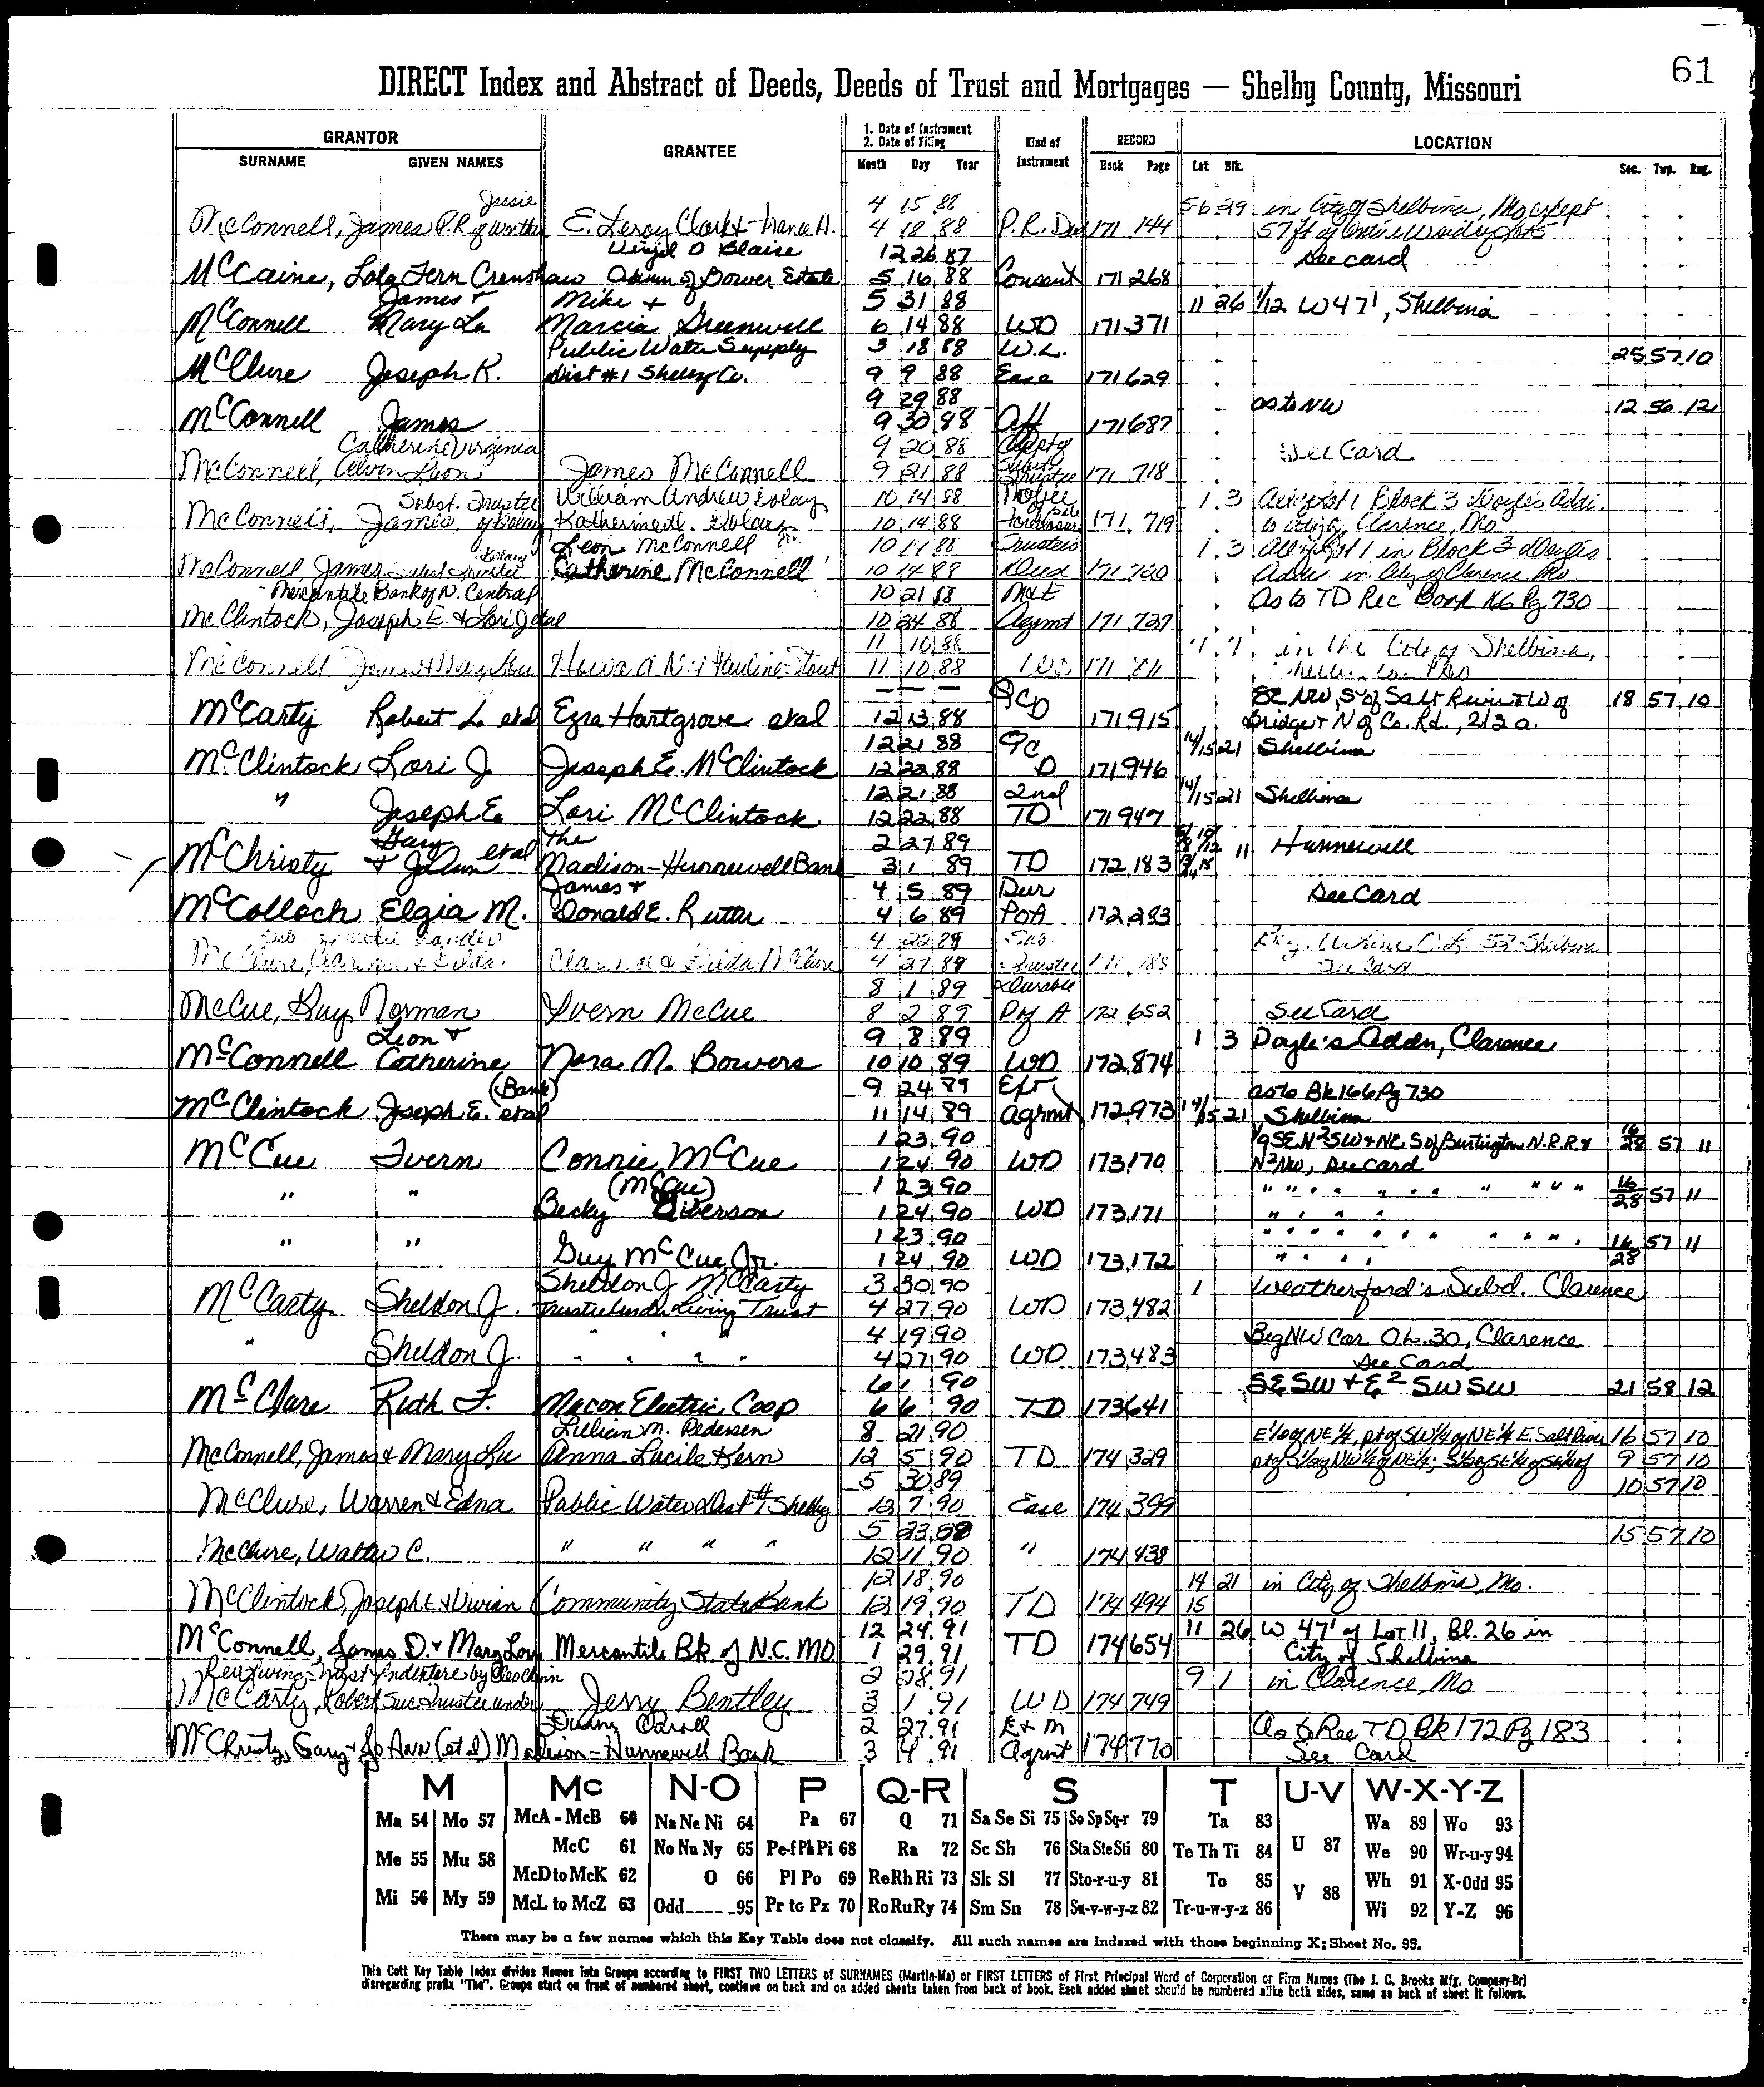 61
DIRECT Index and Abstract of Deeds, Deeds of Trust and Mortgages — Shelby County, Missouri
GRANTOR GRANTEE 1. Date of Instrument 2. Date of Filing Kind of Instrument RECORD LOCATION
SURNAME GIVEN NAMES Month Day Year Book Page Lot Blk. Sec. Twp. Rng.
Jessie 4 15 88 5-6 29 in City of Shelbina, Mo except
McConnell, James P.R. of E. Leroy Clark + 4 18 88 P.R. Deed 171 144 57 ft of
Virgil D Blaise 12 26 87 See card
McCaine, Lola Fern Crenshaw Admn of Bower Estate 5 16 88 Consent 171 268
James + Mike + 5 31 88 11 26 W 47', Shelbina
McConnell Mary Lu Marcia Greenwell 6 14 88 WD 171 371
Public Water Supply 3 18 88 W.L. 25 57 10
McClure Joseph R. Dist #1 Shelby Co. 9 9 88 Ease 171 629
9 29 88 as to NW 12 56 12
McConnell James 9 30 88 Aff 171 687
Catherine Virginia 9 20 88 See Card
McConnell, Alvin Leon James McConnell 9 21 88 Trustee 171 718
Subst. Trustee William Andrew 10 14 88 Notice of 1 3 All of Lot 1 Block 3 Doyle's Addi.
McConnell, James, Katherine 10 14 88 Foreclosure 171 719 to City of Clarence, Mo
Leon McConnell 10 14 88 Trustees 1 3 All of Lot 1 in Block 3 Doyle's
McConnell, James Subst Trustee Catherine McConnell 10 14 88 Deed 171 720 Addi in City of Clarence Mo
Mercantile Bank of N. Central 10 21 88 As to TD Rec Book 166 Pg 730
McClintock, Joseph E. & Lori J etal 10 24 88 Agmt 171 727
11 10 88 in the City of Shelbina,
McConnell, James + Mary Lou Howard N. + Pauline Stout 11 10 88 WD 171 811 Shelby Co. Mo
— — — QCD SE NW, S of Salt River + W of 18 57 10
McCarty Robert L. etal Ezra Hartgrove etal 12 13 88 171 915 Bridge + N of Co. Rd., 2/3 a.
12 21 88 QC 14/15 21 Shelbina
McClintock Lori J. Joseph E. McClintock 12 22 88 D 171 946
12 21 88 2nd 14/15 21 Shelbina
" Joseph E. Lori McClintock 12 22 88 TD 171 947
Gary etal The 2 27 89 11 Hunnewell
McChristy + JoAnn Madison-Hunnewell Bank 3 1 89 TD 172 183
James + 4 5 89 Dur See Card
McColloch Elgia M. Donald E. Rutter 4 6 89 POA 172 283
4 22 89 Sub. Beg. O.L. 52 Shelbina
McClure, Clarence & Hilda Clarence & Hilda McClure 4 27 89 Trustee See Card
8 1 89 Durable
McCue, Guy Norman Ivern McCue 8 2 89 P of A 172 652 See Card
Leon + 9 8 89 1 3 Doyle's Addn, Clarence
McConnell Catherine Nora M. Bowers 10 10 89 WD 172 874
(Bank) 9 24 89 as to Bk 166 Pg 730
McClintock Joseph E. etal 11 14 89 Agrmt 172 973 14/15 21 Shelbina
1 23 90 S of Burlington N.R.R. + 16
McCue Ivern Connie McCue 1 24 90 WD 173 170 N2 NW, See card 28 57 11
(McCue) 1 23 90 16
" " Becky 1 24 90 WD 173 171 28 57 11
1 23 90 16 57 11
" " Guy McCue Jr. 1 24 90 WD 173 172 28
Sheldon J McCarty 3 30 90 1 Weatherford's Subd. Clarence
McCarty Sheldon J. Trustee Under Living Trust 4 27 90 WD 173 482
4 19 90 Beg NW Cor O.L. 30, Clarence
" Sheldon J. " " " " 4 27 90 WD 173 483 See Card
6 1 90 SE SW + E2 SW SW 21 58 12
McClare Ruth F. Macon Electric Coop 6 6 90 TD 173 641
Lillian M. Pedersen 8 21 90 E½ of NE¼, pt of SW¼ of NE¼ E. Salt River 16 57 10
McConnell, James + Mary Lu Anna Lucile Kern 12 5 90 TD 174 329 9 57 10
5 30 89 10 57 10
McClure, Warren & Edna Public Water Dist #1 Shelby 12 7 90 Ease 174 399
5 23 15 57 10
McClure, Walter C. " " " " 12 11 90 " 174 438
12 18 90 14 21 in City of Shelbina, Mo.
McClintock, Joseph E. & Vivian Community State Bank 12 19 90 TD 174 494 15
12 24 91 11 26 W 47' of Lot 11, Bl. 26 in
McConnell, James D. + Mary Lou Mercantile Bk of N.C. MO 1 29 91 TD 174 654 City of Shelbina
Rev Living Trust Indenture by 2 28 91 9 1 in Clarence, Mo
McCarty, Robert Suc Trustee under Jerry Bentley 3 1 91 WD 174 749
Carroll 2 27 91 As to Rec TD Bk 172 Pg 183
McChristy, Gary + Jo Ann (et al) Madison-Hunnewell Bank 3 4 91 Agrmt 174 770 See Card
M Mc N-O P Q-R S T U-V W-X-Y-Z
Ma 54 Mo 57 McA - McB 60 Na Ne Ni 64 Pa 67 Q 71 Sa Se Si 75 So Sp Sq-r 79 Ta 83 Wa 89 Wo 93
Me 55 Mu 58 McC 61 No Nu Ny 65 Pe-f Ph Pi 68 Ra 72 Sc Sh 76 Sta Ste Sti 80 Te Th Ti 84 U 87 We 90 Wr-u-y 94
McD to McK 62 O 66 Pl Po 69 Re Rh Ri 73 Sk Sl 77 Sto-r-u-y 81 To 85 V 88 Wh 91 X-Odd 95
Mi 56 My 59 McL to McZ 63 Odd-----95 Pr to Pz 70 Ro Ru Ry 74 Sm Sn 78 Su-v-w-y-z 82 Tr-u-w-y-z 86 Wi 92 Y-Z 96
There may be a few names which this Key Table does not classify. All such names are indexed with those beginning X; Sheet No. 95.
This Cott Key Table Index divides Names into Groups according to FIRST TWO LETTERS of SURNAMES (Martin-Ma) or FIRST LETTERS of First Principal Word of Corporation or Firm Names (The J. C. Brooks Mfg. Company-Br)
disregarding prefix "The". Groups start on front of numbered sheet, continue on back and on added sheets taken from back of book. Each added sheet should be numbered alike both sides, same as back of sheet it follows.